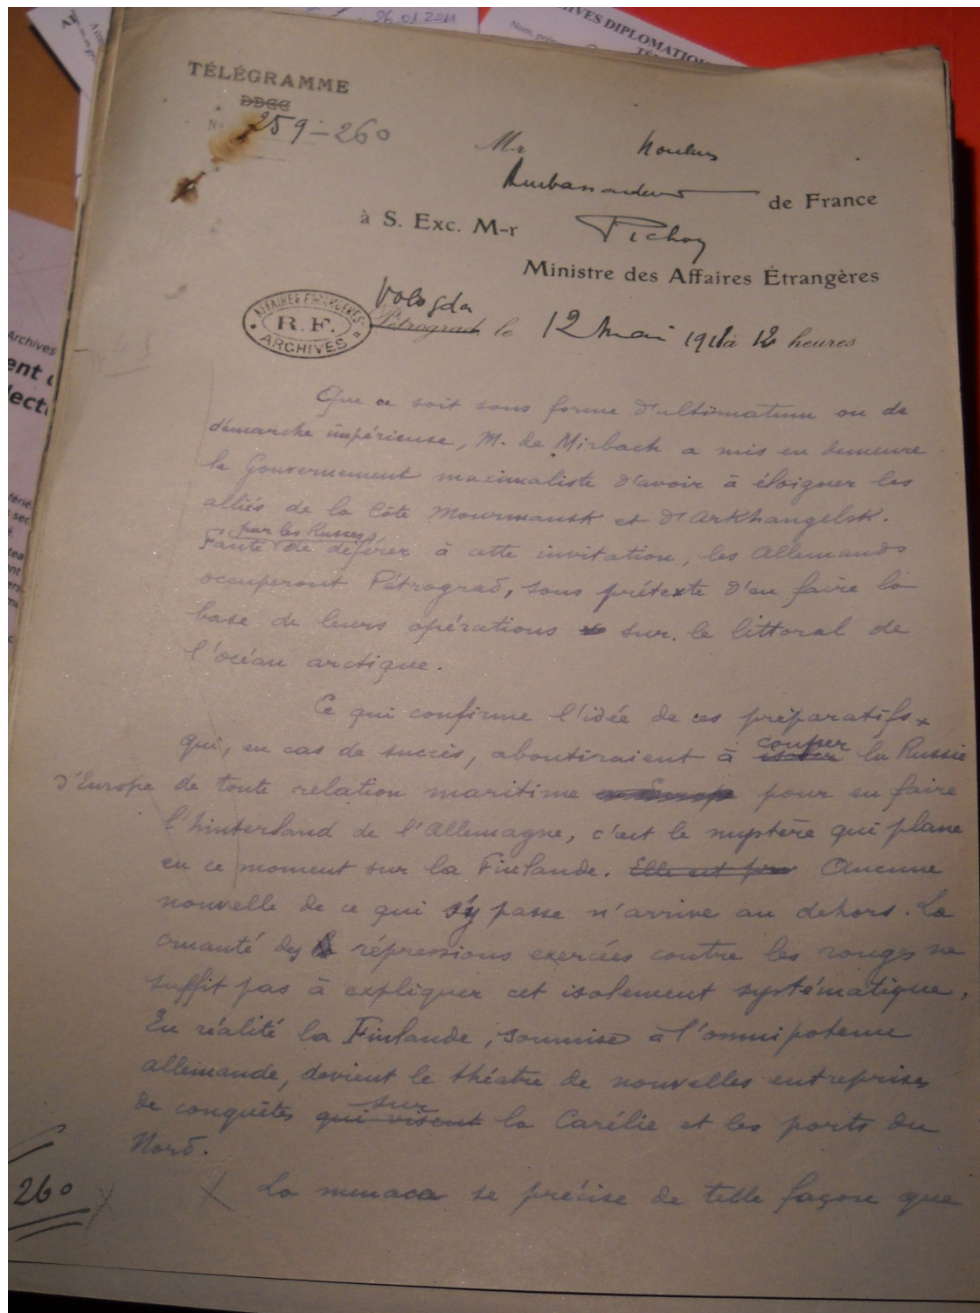 06.01.2011
ARCHIVES DIPLOMATIQ
Nom, pré
TÉLÉGRAMME
DDCC
N° 259-260
Mr Noulens
Ambassadeur de France
à S. Exc. M-r Pichon
Ministre des Affaires Étrangères
AFFAIRES ETRANGERES
R.F.
ARCHIVES
Vologda
Pétrograd le 12 mai 1918 à 12 heures
Archives
ent
lect
Que ce soit sous forme d'ultimatum ou de
démarche impérieuse, M. de Mirbach a mis en demeure
le Gouvernement maximaliste d'avoir à éloigner les
alliés de la Côte Mourmansk et d'Arkhangelsk.
par les Russes
Faute de déférer à cette invitation, les Allemands
occuperont Pétrograd, sous prétexte d'en faire la
base de leurs opérations sur le littoral de
l'océan arctique.
Ce qui confirme l'idée de ces préparatifs
couper
qui, en cas de succès, aboutiraient à isoler la Russie
d'Europe de toute relation maritime en Europe pour en faire
l'hinterland de l'Allemagne, c'est le mystère qui plane
en ce moment sur la Finlande. Elle est Aucune
nouvelle de ce qui s'y passe n'arrive au dehors. La
cruauté des répressions exercées contre les rouges ne
suffit pas à expliquer cet isolement systématique.
En réalité la Finlande, soumise à l'omnipotence
allemande, devient le théâtre de nouvelles entreprises
sur
de conquêtes qui visent la Carélie et les ports du
Nord.
260
La menace se précise de telle façon que